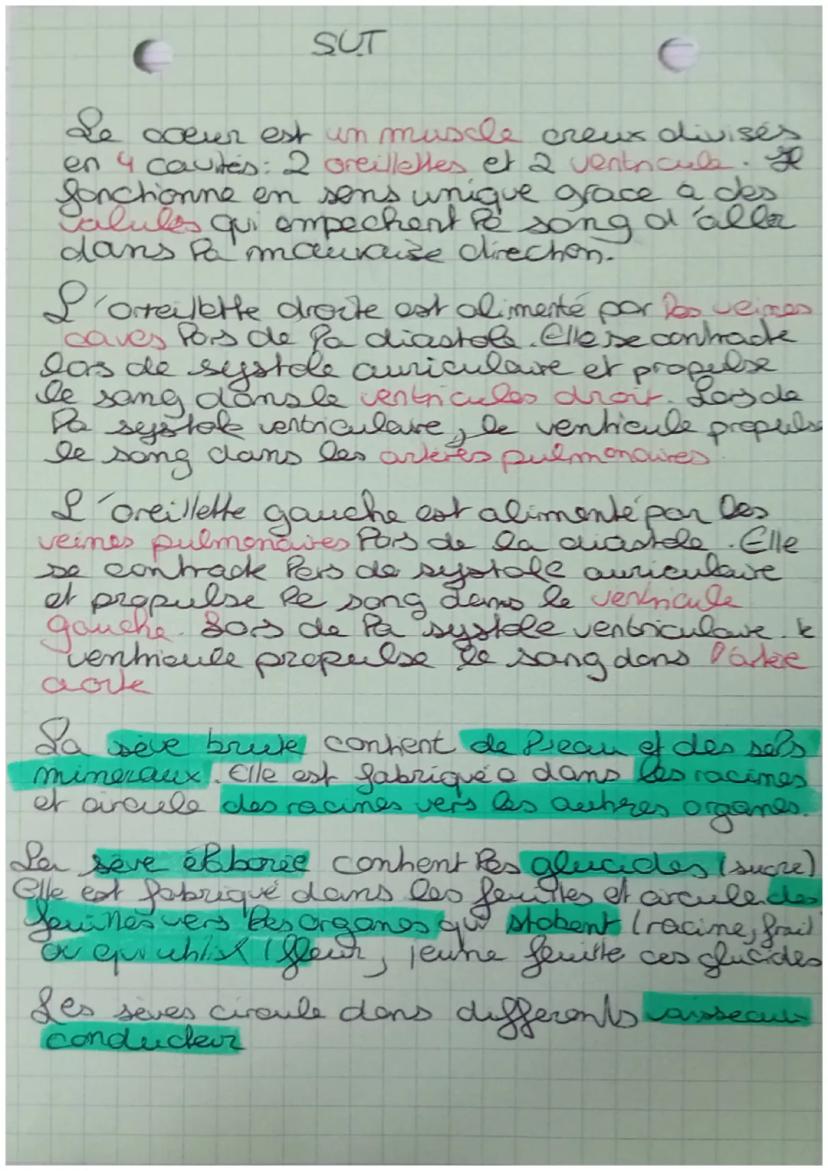 SVT
Le coeur est un muscle creux divisés
en 4 cavités: 2 oreillettes et 2 ventricule. Il
fonctionne en sens unique grace a des
valules qui empechent le sang d'aller
dans la mauvaise direction.
L'orreillette droite est alimenté par les veines
caves lors de la diastole. Elle se contracte
lors de systole auriculaire et propulse
le sang dans le ventricules droit. Lors de
la systole ventriculaire, le ventricule propulse
le sang dans les artères pulmonaires
L'oreillette gauche est alimenté par les
veines pulmonaires lors de la diastole. Elle
se contracte lors de systole auriculaire
et propulse le sang dans le ventricule
gauche. Lors de la systole ventriculaire. le
ventricule propulse le sang dans l'artère
aorte
La sève brute contient de l'eau et des sels
mineraux. Elle est fabriquée dans les racines
et circule des racines vers les autres organes.
La sève élaborée contient les glucides (sucre)
Elle est fabriqué dans les feuilles et circule des
feuilles vers les organes qui stokent (racine, fruit)
ou qui utilise (fleur, jeune feuille ces glucides
Les sèves circule dans differents vaisseaux
conducteur